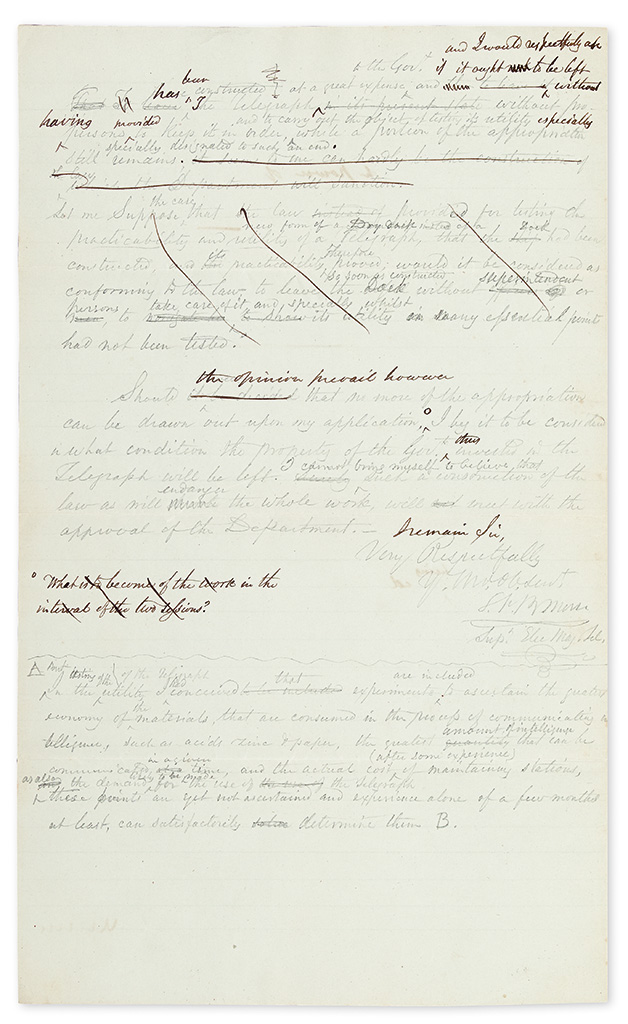 and I would respectfully ask
to the Gov.t if it ought not to be left
has been constructed at a great expense, and without
having provided the Telegraph in its present state without
persons to keep it in order, and to carry out the object, of testing its utility especially
while a portion of the appropriation
specially designated to such an end.
still remains.
can hardly the construction of
the Department will
the case
Let me suppose that the law instead of provided for testing the
new form of a Dry Dock instead of a Dock
practicability and utility of a Telegraph, that the had been
constructed, and its practicability proved, would it therefore be considered as
So soon as constructed superintendent
conforming to the law to leave the Dock without or
persons take care of it, and specially whilst
to its utility in many essential points
had not been tested.
the opinion prevail however
Should it be decided that no more of the appropriation
can be drawn out upon my application, I beg it to be considered
in what condition the property of the Gov.t thus invested in the
Telegraph will be left. I cannot bring myself to believe, that
such a construction of the
endanger
law as will the whole work, will meet with the
approval of the Department. —
I remain Sir,
Very Respectfully
Y.r Mo. Ob. Servt
S. F. B. Morse
Supt. Elec. Mag. Tel.
° What is to become of the work in the
interval of the two sessions?
testing of the of the Telegraph
In the utility I conceived that are included
experiments to ascertain the greatest
economy of the materials, that are consumed in the process of communicating in-
amount of intelligence
telligence, such as acids zinc & paper, the greatest quantity that can be
in a given (after some experience)
communicated time, and the actual cost of maintaining stations,
as also the demand likely to be made for the use of the Telegraph
these points are yet not ascertained and experience alone of a few months
at least, can satisfactorily determine them B.